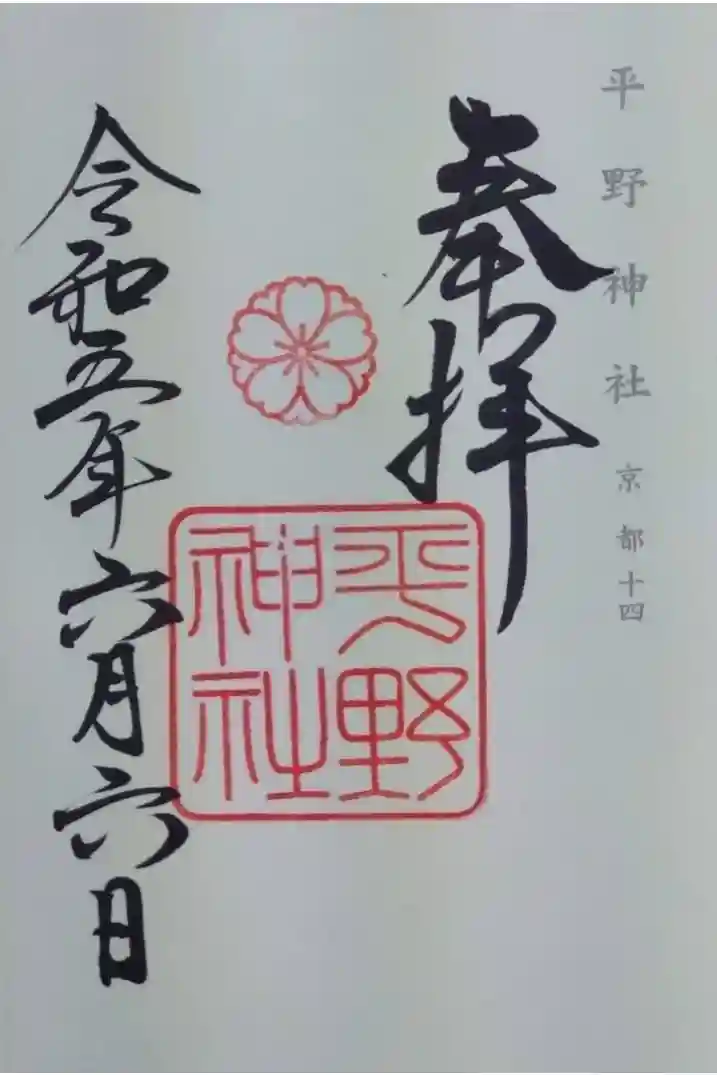 平野神社 京都十四
奉拝
平野
神社
令和五年六月六日